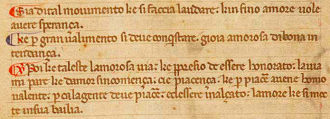 Sia di tal mouimento ke si faccia laudare: kun fino amore uole
auere sperança.
ke p gran ualimento si deue conqstare. gioia amorosa di bona in
tendança.
Poi ke tal este lamorosa uia: ke p presio de essere honorato: la uia
mi pare ke d amor sincomença: cie piacença. ke p piacē auene homo
in p ca la gente deue piacē: ce lessere lamore ke si me
te in sua bailia.